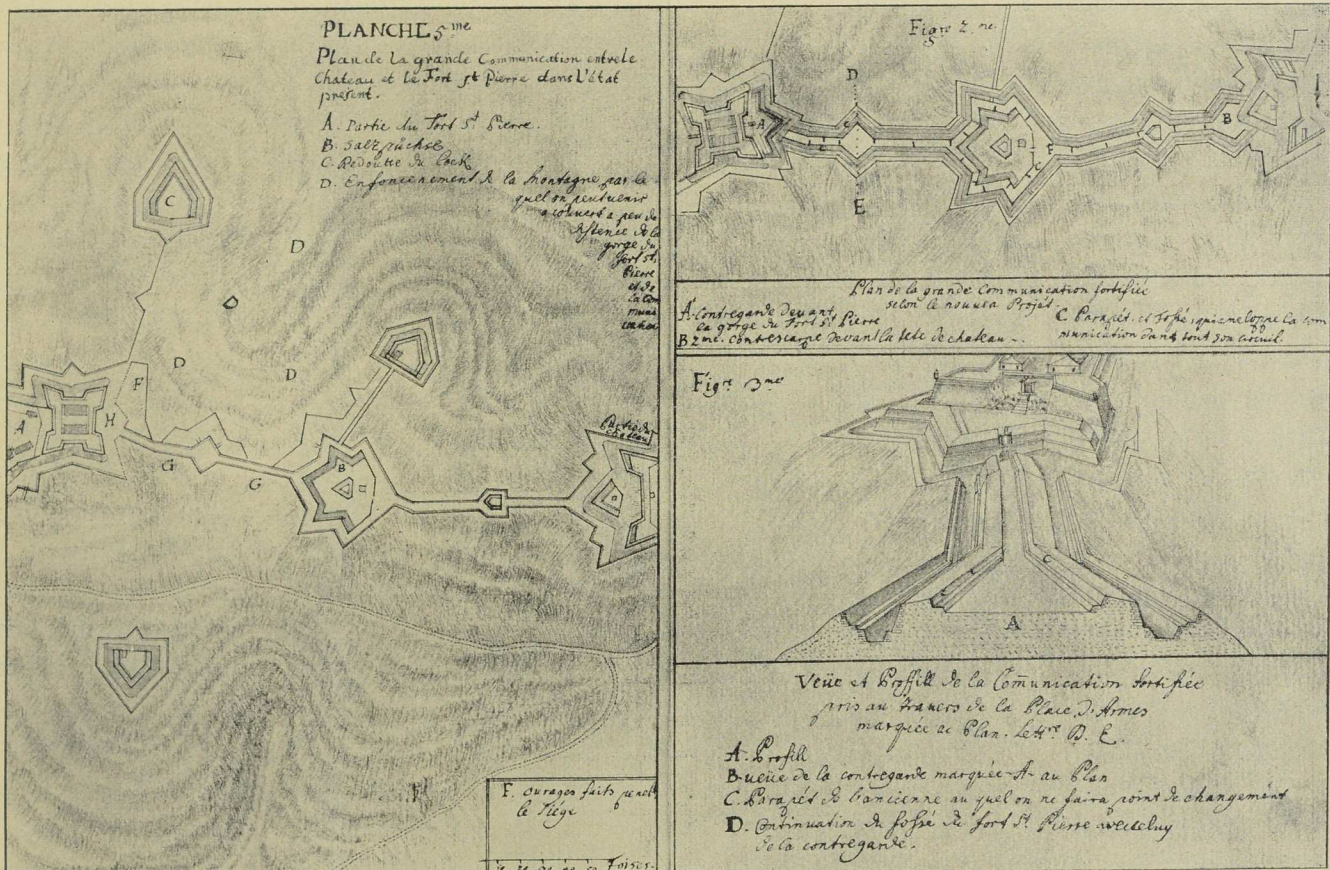 PLANCHE 5me
Plan de La grande Communication entre le
Chateau et le Fort st Pierre dans L'état
present.
A. Partie du Fort St. Pierre.
B. Salzpüchse
C. Redoutte du Lock
D. Enfoncement de la Montagne par le
quel on peut venir
a couvert a peu de
distence de la
gorge du
fort st.
Pierre
et de
la Com
muni
cation
C
D
D
D
F
A
H
G
G
B
Partie du
Chateau
F. ouvrages faits pend
le siége
Toises.
Figre 2me
D
A
B
E
C
Plan de la grande Communication fortifiée
selon le nouvea Projet.
A. Contregarde devant
la gorge du Fort St Pierre
B 2me. contrescarpe devant la tete de chateau.
C. Parapét et Fossé qui enveloppe la com
munication dans tout son circuit.
Figre 3me
C
A
Veüe et Proffill de la Communication fortifiée
pris au travers de la Place D'Armes
marquée au Plan. Lettre D. E.
A. Profill
B. veüe de la contregarde marquée A. au Plan
C. Parapét de l'ancienne au quel on ne faira point de changemént
D. Continuation du fossé du fort St. Pierre avec celuy
de la contregarde.